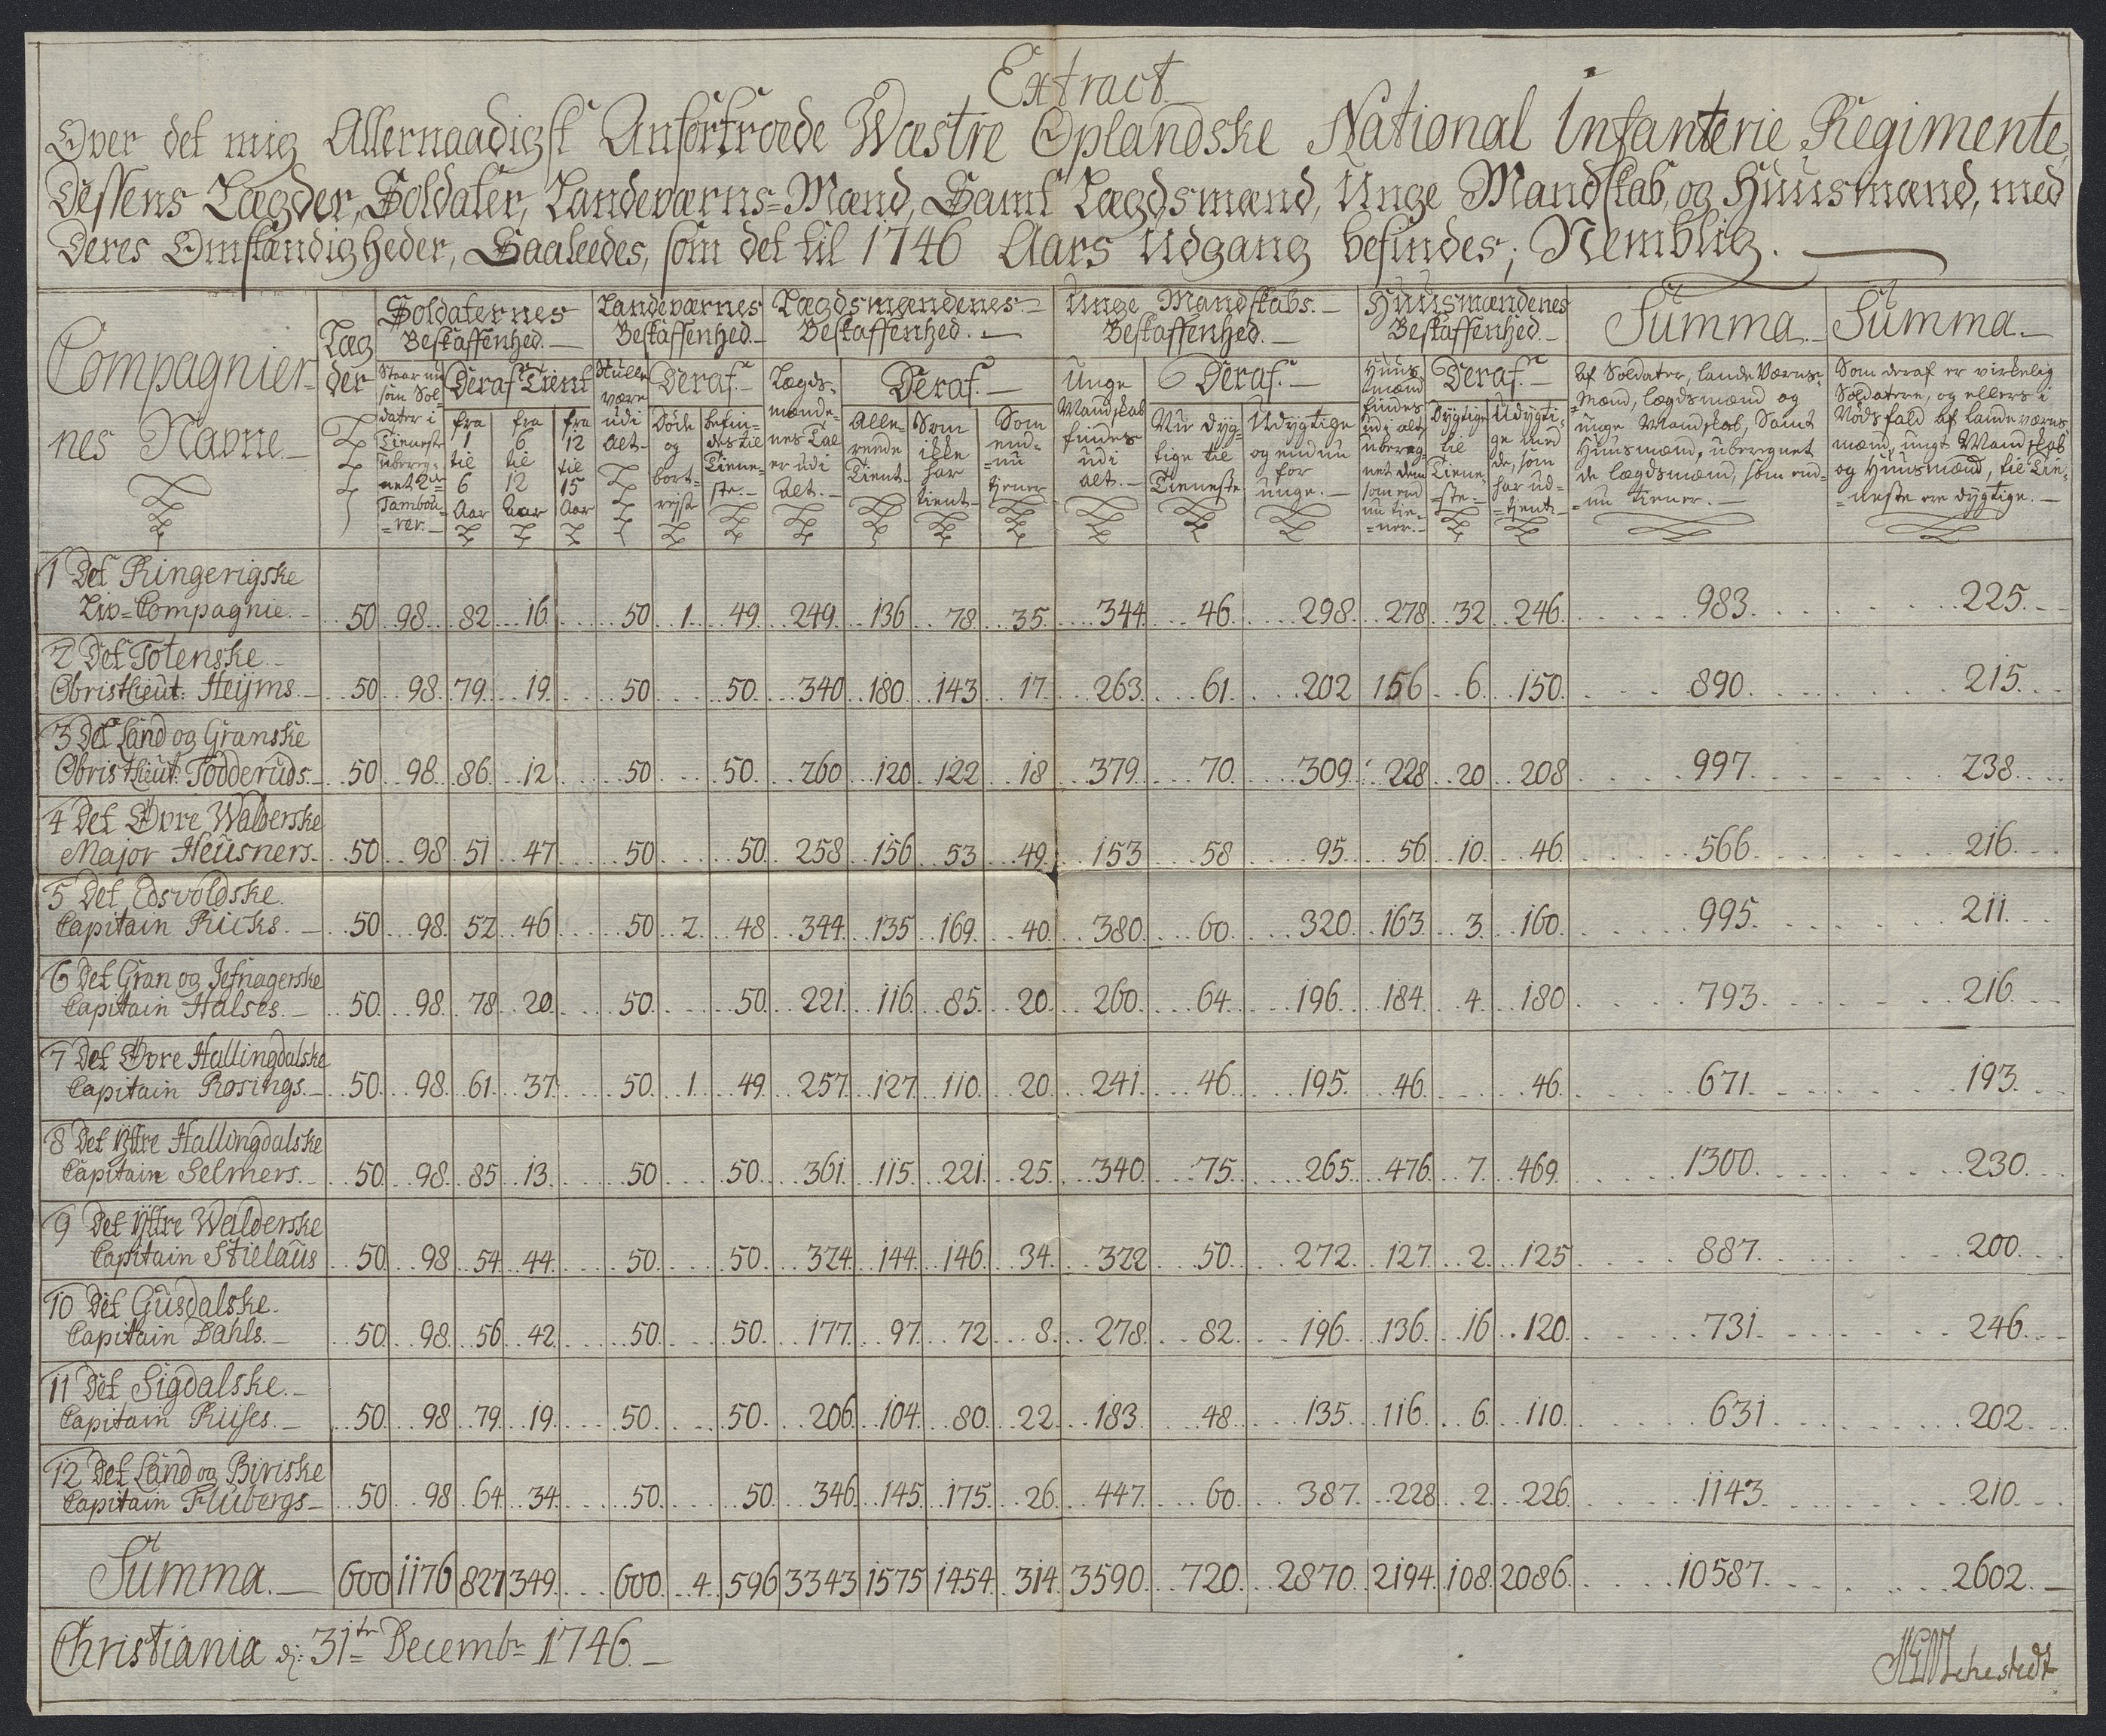 Extract
Over det mig Allernaadigst Anfortroede Wæstre Oplandske National Infanterie Regimente,
Dessens Lægder, Soldater, Landeværns=Mænd, Samt Lægdsmænd, Unge Mandskab, og Huusmænd, med
Deres Omstændigheder, Saaleedes, som det til 1746 Aars Udgang befindes; Nemblig.
Compagnier-
nes Navne.
Læg
der
Soldaternes
Beskaffenhed.
Staar nu
som Sol-
dater i
Tieneste
ubereg-
net 2de
Tambou-
=rer.
Deraf Tient
fra
1
til
6
Aar
fra
6
til
12
Aar
fra
12
til
15
Aar
Landeværnes
Beskaffenhed.
Skulle
være
udi
alt.
Deraf.
Døde
og
bort-
rejst
befin-
des til
Tiene-
ste.
Lægdsmændenes
Beskaffenhed.
Lægds-
mænde-
nes Tal
er udi
alt.
Deraf.
Alle-
reede
Tient
Som
ikke
har
tient
Som
end-
=nu
tjener
Unge Mandskabs.
Beskaffenhed.
Unge
Mandskab
findes
udi
alt.
Deraf.
Nu dyg-
tige til
Tieneste
Udygtige
og endnu
for
unge.
Huusmændenes
Beskaffenhed.
Huus
mænd
findes
udi alt,
ubereg-
net dem
som end
nu tie-
=ner.
Deraf.
Dygtige
til
Tiene-
=ste
Udygti-
ge med
de, som
har ud-
=tjent.
Summa.
Af Soldater, lande Værns-
=Mænd, Lægdsmænd og
unge Mandskab, Samt
Huusmænd, uberegnet
de Lægdsmænd, som end-
=nu tiener.
Summa.
Som deraf er virkelig
Soldatere, og ellers i
Nødsfald af landeværns
mænd, ungt Mandskab
og Huusmænd, til Tie-
=neste ere dygtige.
1 Det Ringerigske
Liv=Compagnie. 50 98 82 16 50 1 49 249 136 78 35 344 46 298 278 32 246 983 225
2 Det Totenske
Obristlieut: Heijms. 50 98 79 19 50 50 340 180 143 17 263 61 202 156 6 150 890 215
3 Det Land og Granske
Obristlieut: Todderuds. 50 98 86 12 50 50 260 120 122 18 379 70 309 228 20 208 997 238
4 Det Øvre Walderske
Major Heusners. 50 98 51 47 50 50 258 156 53 49 153 58 95 56 10 46 566 216
5 Det Edsvoldske.
Capitain Ricks. 50 98 52 46 50 2 48 344 135 169 40 380 60 320 163 3 160 995 211
6 Det Gran og Jefnagerske
Capitain Halses. 50 98 78 20 50 50 221 116 85 20 260 64 196 184 4 180 793 216
7 Det Øvre Hallingdalske
Capitain Rosings. 50 98 61 37 50 1 49 257 127 110 20 241 46 195 46 46 671 193
8 Det Yttre Hallingdalske
Capitain Selmers. 50 98 85 13 50 50 361 115 221 25 340 75 265 476 7 469 1300 230
9 Det Yttre Walderske
Capitain Stielaus 50 98 54 44 50 50 324 144 146 34 322 50 272 127 2 125 887 200
10 Det Gusdalske.
Capitain Dahls. 50 98 56 42 50 50 177 97 72 8 278 82 196 136 16 120 731 246
11 Det Sigdalske.
Capitain Riises. 50 98 79 19 50 50 206 104 80 22 183 48 135 116 6 110 631 202
12 Det Land og Biriske
Capitain Flubergs 50 98 64 34 50 50 346 145 175 26 447 60 387 228 2 226 1143 210
Summa. 600 1176 827 349 600 4 596 3343 1575 1454 314 3590 720 2870 2194 108 2086 10587 2602
Christiania d: 31tn Decembr 1746.